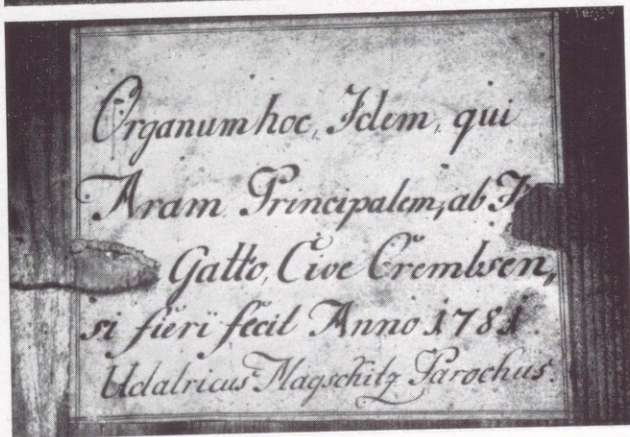 Organum hoc, Idem, qui
Aram Principalem, ab
Gatto, Cive Crembsen,
si fieri fecit Anno 1781.
Udalricus Magschitz Parochus.